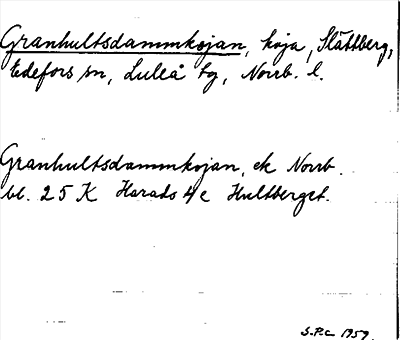 Granhultsdammkojan, koja, Slättberg,
Edefors sn, Luleå tg, Norrb. l.
Granhultsdammkojan, ek Norrb.
bl. 25 K Harads 4 c Hultberget.
S.P.C 1959.